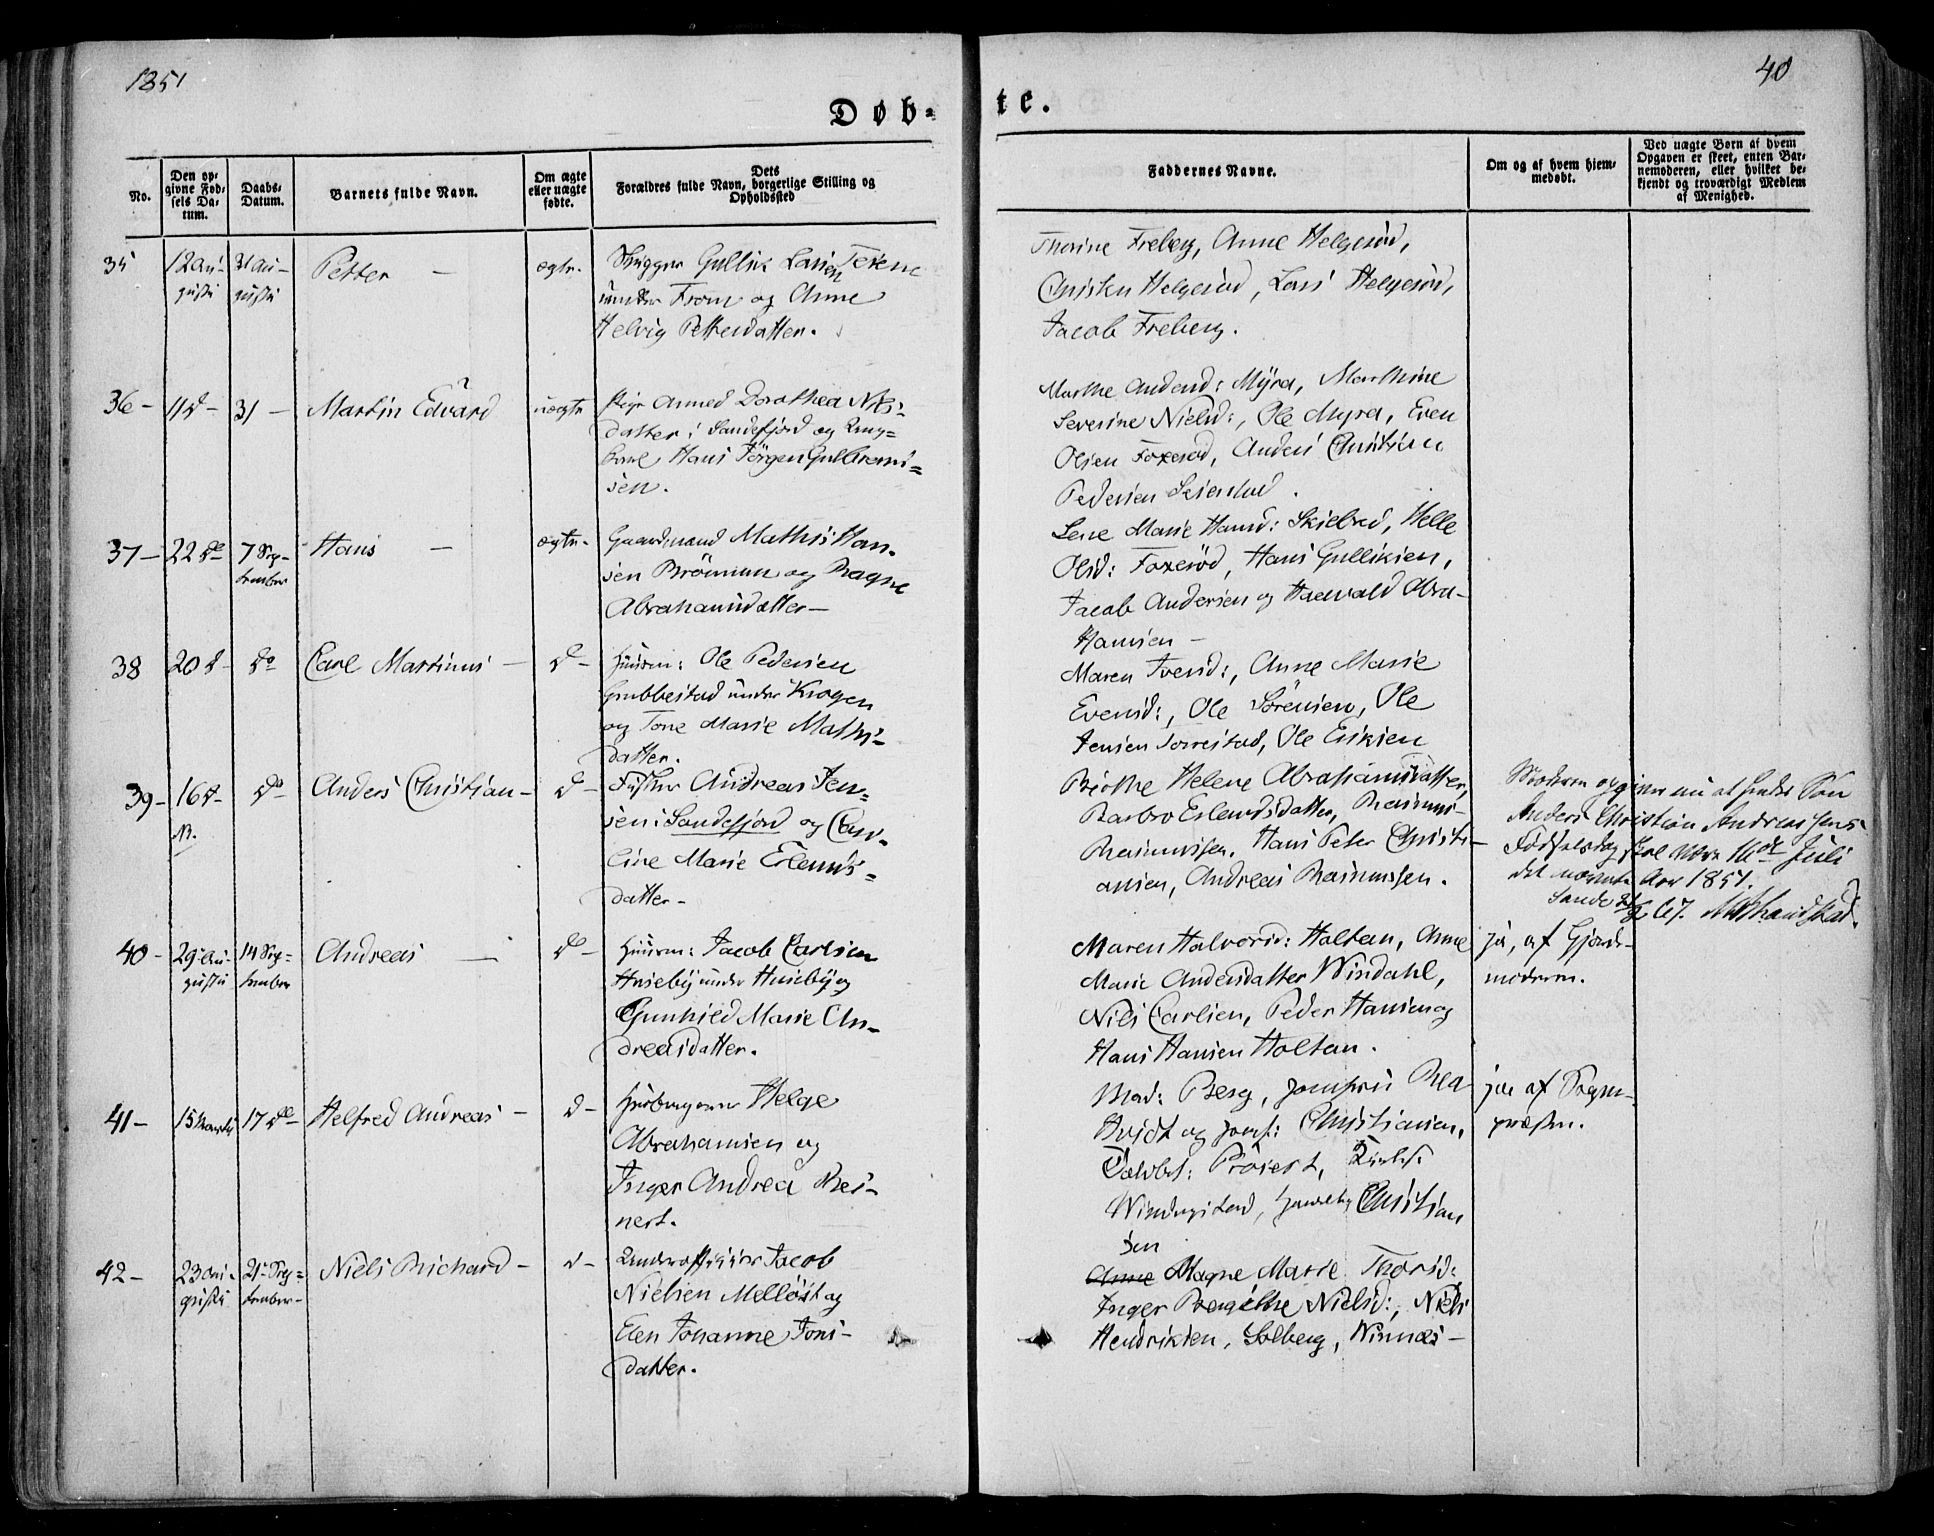 1851
40
Døb-
te.
No.
Den op-
givne Fød-
sels Da-
tum.
Daabs-
Datum.
Barnets fulde Navn.
Om ægte
eller uægte
fødte.
Dets
Forældres fulde Navn, borgerlige Stilling og
Opholdssted
Faddernes Navne.
Om og af hvem hjem-
medøbt.
Ved uægte Børn af hvem
Opgaven er skeet, enten Bar-
nemoderen, eller hvilket be-
kjendt og troværdigt Medlem
af Menighed.
35
12 Au-
gusti
31 Au-
gusti
Petter —
ægte.
Gullik Larsen
under From og Anne
Helvig Pettersdatter.
Thorine Freberg, Anne Helgerød,
Christen Helgerød, Lars Helgerød,
Jacob Freberg.
36 -
11 d -
31 -
Martin Edvard
uægte
Pige Anned Dorothea Nils-
datter i Sandefjord og Ung-
karl Hans Jörgen Gulbrand-
sen.
Marthe Andersd: Myra, Marthine
Severine Nielsd:, Ole Myra, Even
Olsen Foxerød, Anders Christian
Pedersen Seierstad.
37 -
22 do
7 Sep-
tember
Hans —
ægte -
Gaardmand Mathis Han-
sen Brönnum og Ragne
Abrahamsdatter -
Lene Marie Hansd: Skielbred, Helle
Olsd: Foxerød, Hans Gulliksen,
Jacob Andersen og Haavald Abra-
hamsen -
38
20 d -
do
Carl Martinus -
do -
Huusm: Ole Pedersen
Grubbestad under Krogen
og Tone Marie Mathis-
datter.
Maren Iversd:, Anne Marie
Evensd:, Ole Sörensen, Ole
Jensen Sorrestad, Ole Eriksen
39 -
16 d -
NB.
do
Anders Christian -
d -
Fisker Andreas Jen-
sen i Sandefjord og Car-
line Marie Erlends-
datter -
Birthe Helene Abrahamsdatter,
Barbro Erlendsdatter, Rasmus
Rasmussen, Hans Peter Christi-
ansen, Andreas Rasmussen.
Moderen opgiver nu at hendes Søn
Anders Christian Andreassens
Fødselsdag skal være 16de Juli
det nævnte Aar 1851.
40 -
29 Au-
gusti
14 Sep-
tember
Andreas —
do -
Huusm: Jacob Carlsen
Huseby under Huseby og
Gunhild Marie An-
dreasdatter.
Maren Halvorsd: Holtan, Anne
Marie Andersdatter Windahl,
Nils Carlsen, Peder Hansen og
Hans Hansen Holtan.
ja, af Gjord-
moderen.
41 -
15 Marts
17 do
Helfred Andreas -
d -
Helge
Abrahamsen og
Inger Andrea Rei-
nert.
Mad: Berg, Jomfru Bea
Hvidt og Jomf: Christiansen,
Christian
sen
ja af Sogne-
præsten.
42 -
23 Au-
gusti
21 Sep-
tember -
Niels Richard -
d -
Underofficier Jacob
Nielsen Mellöst og
Elen Johanne Jons-
datter.
Anne Magne Marie Thorsd:
Inger Bergithe Nielsd:, Niels
Hendriksen, Solberg, Winnæs -